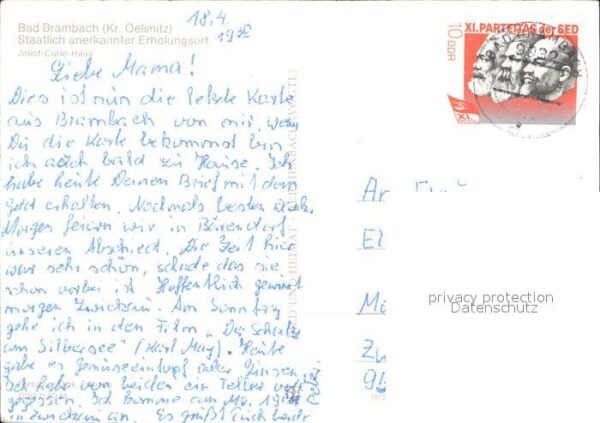 Bad Brambach (Kr. Oelsnitz)
Staatlich anerkannter Erholungsort
Joliot-Curie-Haus
18.4.
XI. PARTEITAG der SED
10 DDR
XI.
Liebe Mama!
Dies ist nun die letzte Karte
aus Brambach von mir, wenn
Du die Karte bekommst bin
ich auch bald zu Hause. Ich
habe heute Deinen Brief mit dem
Geld erhalten. Nochmals besten Dank.
Morgen feiern wir in Bärendorf
unseren Abschied. Die Zeit hier
war sehr schön, schade das sie
schon vorbei ist. Hoffentlich gewinnt
morgen Zwickau. Am Sonntag
gehe ich in den Film „Der Schatz
im Silbersee" (Karl May). Heute
gabe es Gemüseeintopf oder Linsen
Ich habe von beiden ein Teller voll
gegessen. Ich komme am Mo.
in Zwickau an. Es grüßt Euch beide
Peter
BILD UND HEIMAT REICHENBACH (VOGTL)
An
El
Zw
privacy protection
Datenschutz